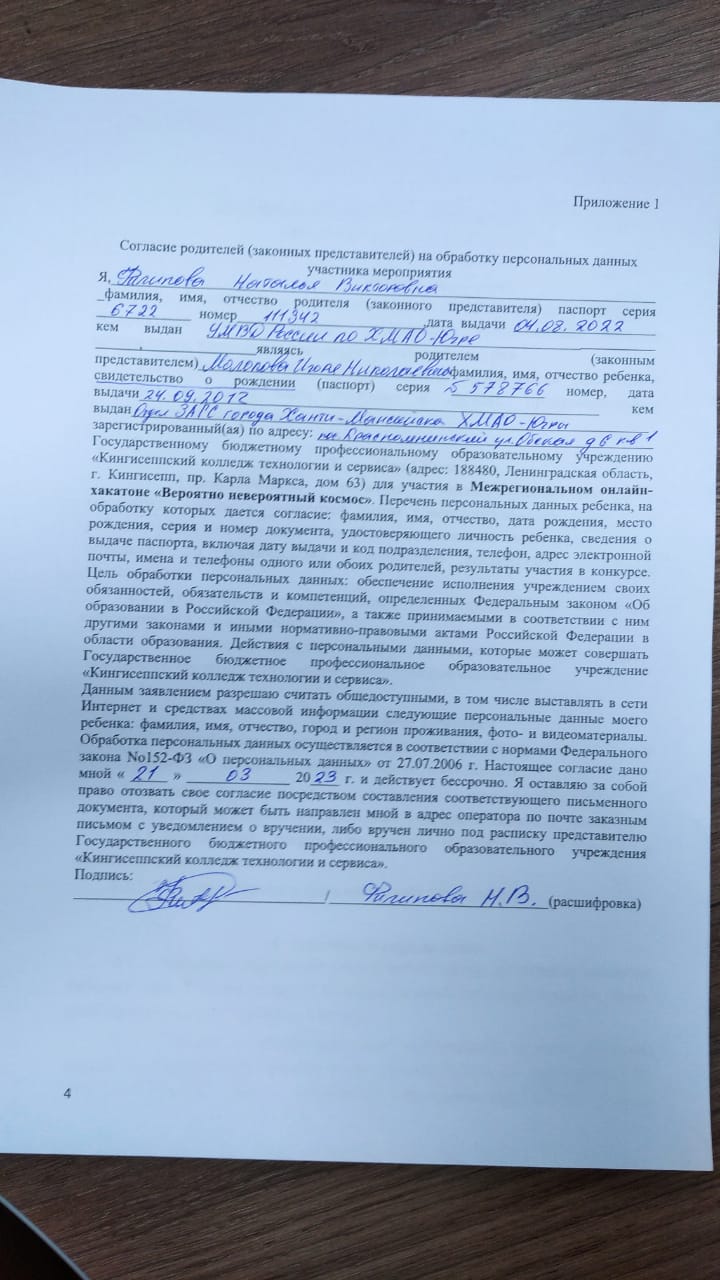 Приложение 1
Согласие родителей (законных представителей) на обработку персональных данных
участника мероприятия
Я, Филипова Наталья Викторовна
_фамилия, имя, отчество родителя (законного представителя) паспорт серия
6722 номер 111342 ,дата выдачи 04.08.2022
кем выдан УМВД России по ХМАО-Югре
, являясь родителем (законным
представителем) Николаевича фамилия, имя, отчество ребенка,
свидетельство о рождении (паспорт) серия 578766 номер, дата
выдачи 24.09.2012 кем
выдан Отдел ЗАГС города Ханты-Мансийска ХМАО-Югры
зарегистрированный(ая) по адресу: ул. Обская д 6 кв 1
Государственному бюджетному профессиональному образовательному учреждению
«Кингисеппский колледж технологии и сервиса» (адрес: 188480, Ленинградская область,
г. Кингисепп, пр. Карла Маркса, дом 63) для участия в Межрегиональном онлайн-
хакатоне «Вероятно невероятный космос». Перечень персональных данных ребенка, на
обработку которых дается согласие: фамилия, имя, отчество, дата рождения, место
рождения, серия и номер документа, удостоверяющего личность ребенка, сведения о
выдаче паспорта, включая дату выдачи и код подразделения, телефон, адрес электронной
почты, имена и телефоны одного или обоих родителей, результаты участия в конкурсе.
Цель обработки персональных данных: обеспечение исполнения учреждением своих
обязанностей, обязательств и компетенций, определенных Федеральным законом «Об
образовании в Российской Федерации», а также принимаемыми в соответствии с ним
другими законами и иными нормативно-правовыми актами Российской Федерации в
области образования. Действия с персональными данными, которые может совершать
Государственное бюджетное профессиональное образовательное учреждение
«Кингисеппский колледж технологии и сервиса».
Данным заявлением разрешаю считать общедоступными, в том числе выставлять в сети
Интернет и средствах массовой информации следующие персональные данные моего
ребенка: фамилия, имя, отчество, город и регион проживания, фото- и видеоматериалы.
Обработка персональных данных осуществляется в соответствии с нормами Федерального
закона No152-ФЗ «О персональных данных» от 27.07.2006 г. Настоящее согласие дано
мной « 21 » 03 2023 г. и действует бессрочно. Я оставляю за собой
право отозвать свое согласие посредством составления соответствующего письменного
документа, который может быть направлен мной в адрес оператора по почте заказным
письмом с уведомлением о вручении, либо вручен лично под расписку представителю
Государственного бюджетного профессионального образовательного учреждения
«Кингисеппский колледж технологии и сервиса».
Подпись:
/ Филипова Н.В. (расшифровка)
4